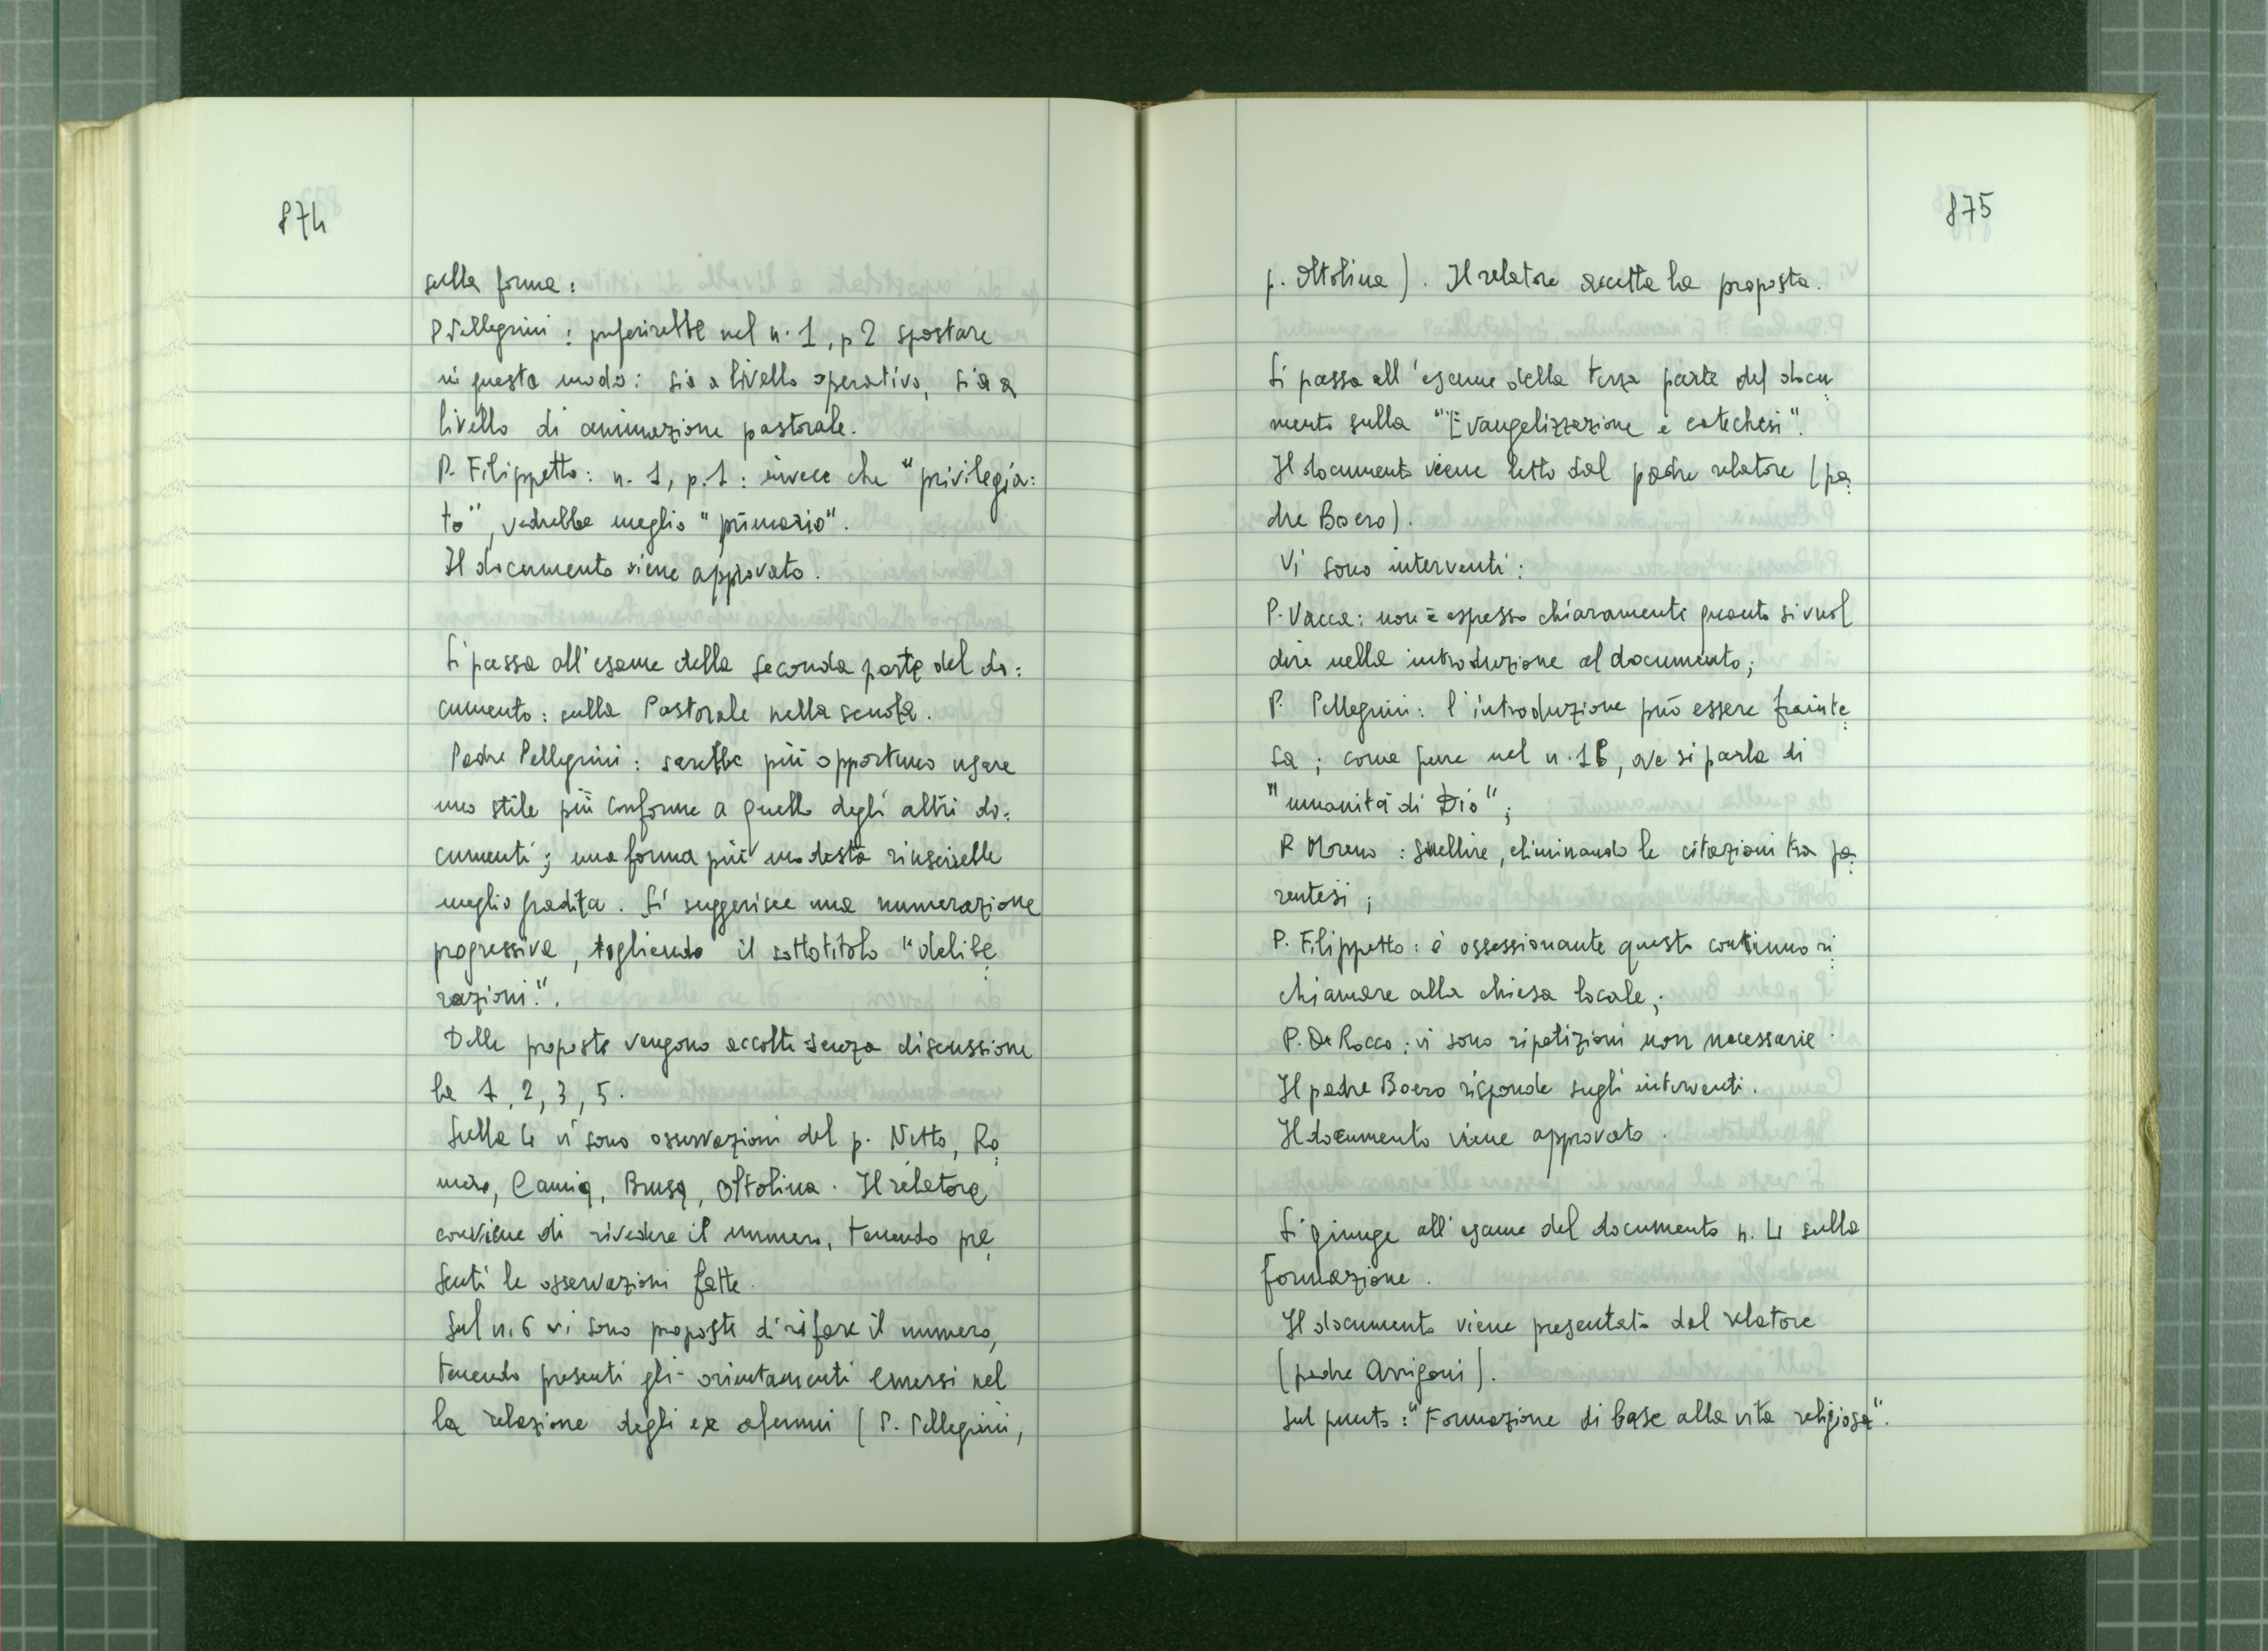 874
sulla forma:
P Pellegrini: preferirebbe nel n. 1, p 2 spostare
in questo modo: sia a livello operativo, sia a
livello di animazione pastorale.
P. Filippetto: n. 1, p. 1: invece che "privilegia:
to", vedrebbe meglio "primario".
Il documento viene approvato.
Si passa all'esame della seconda parte del do:
cumento: sulla Pastorale nella scuola.
Padre Pellegrini: sarebbe più opportuno usare
uno stile più conforme a quello degli altri do:
cumenti; una forma più modesta riuscirebbe
meglio gradita. Si suggerisce una numerazione
progressiva, togliendo il sottotitolo "delibe
razioni".
Delle proposte vengono accolte senza discussione
le 1, 2, 3, 5.
Sulla 4 vi sono osservazioni del p. Netto, Ro
mero, Camia, Brusa, Oltolina. Il relatore
conviene di rivedere il numero, tenendo pre
senti le osservazioni fatte.
Sul n. 6 vi sono proposte di rifare il numero,
tenendo presenti gli orientamenti emersi nel
la relazione degli ex alunni (P. Pellegrini,
875
p. Oltolina). Il relatore accetta la proposta.
Si passa all'esame della terza parte del docu
mento sulla "Evangelizzazione e catechesi".
Il documento viene letto dal padre relatore (pa
dre Boero).
Vi sono interventi:
P. Vacca: non è espresso chiaramente quanto si vuol
dire nella introduzione al documento;
P. Pellegrini: l'introduzione può essere frainte
sa; come pure nel n. 1B, ove si parla di
"umanità di Dio";
P. Moreno: snellire, eliminando le citazioni tra pa
rentesi;
P. Filippetto: è ossessionante questo continuo ri
chiamare alla chiesa locale;
P. De Rocco: vi sono ripetizioni non necessarie.
Il padre Boero risponde sugli interventi.
Il documento viene approvato.
Si giunge all'esame del documento n. 4 sulla
formazione.
Il documento viene presentato dal relatore
(padre Arrigoni).
Sul punto: "Formazione di base alla vita religiosa".